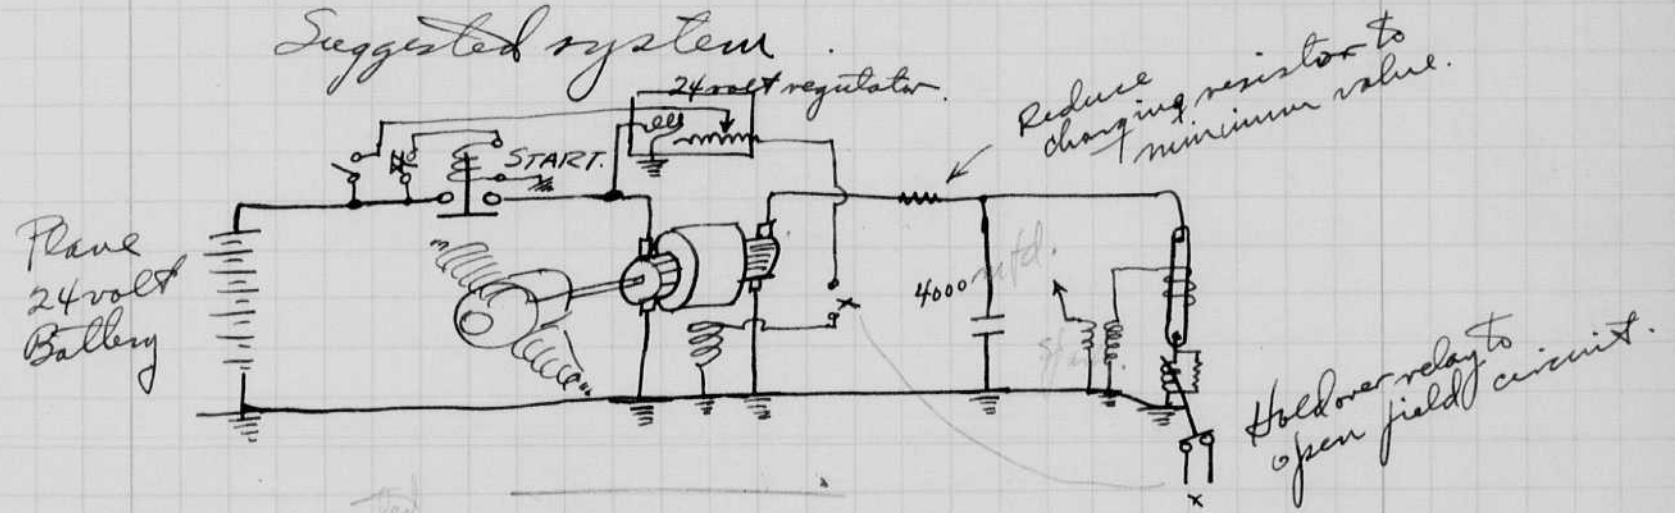 Suggested system.
24 volt regulator.
Reduce
charging resistor to
minimum value.
START.
Plane
24 volt
Battery
4000 mfd.
x
Holdover relay to
open field circuit.
x